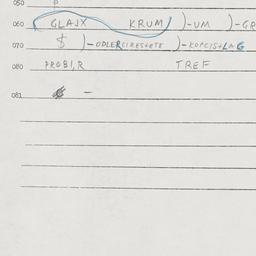 050
060 GLAJX KRUM )-UM )-GR
070 $ )-ODLER )-KOPCIS+LAG
080 PROBI,R TREF
081 -